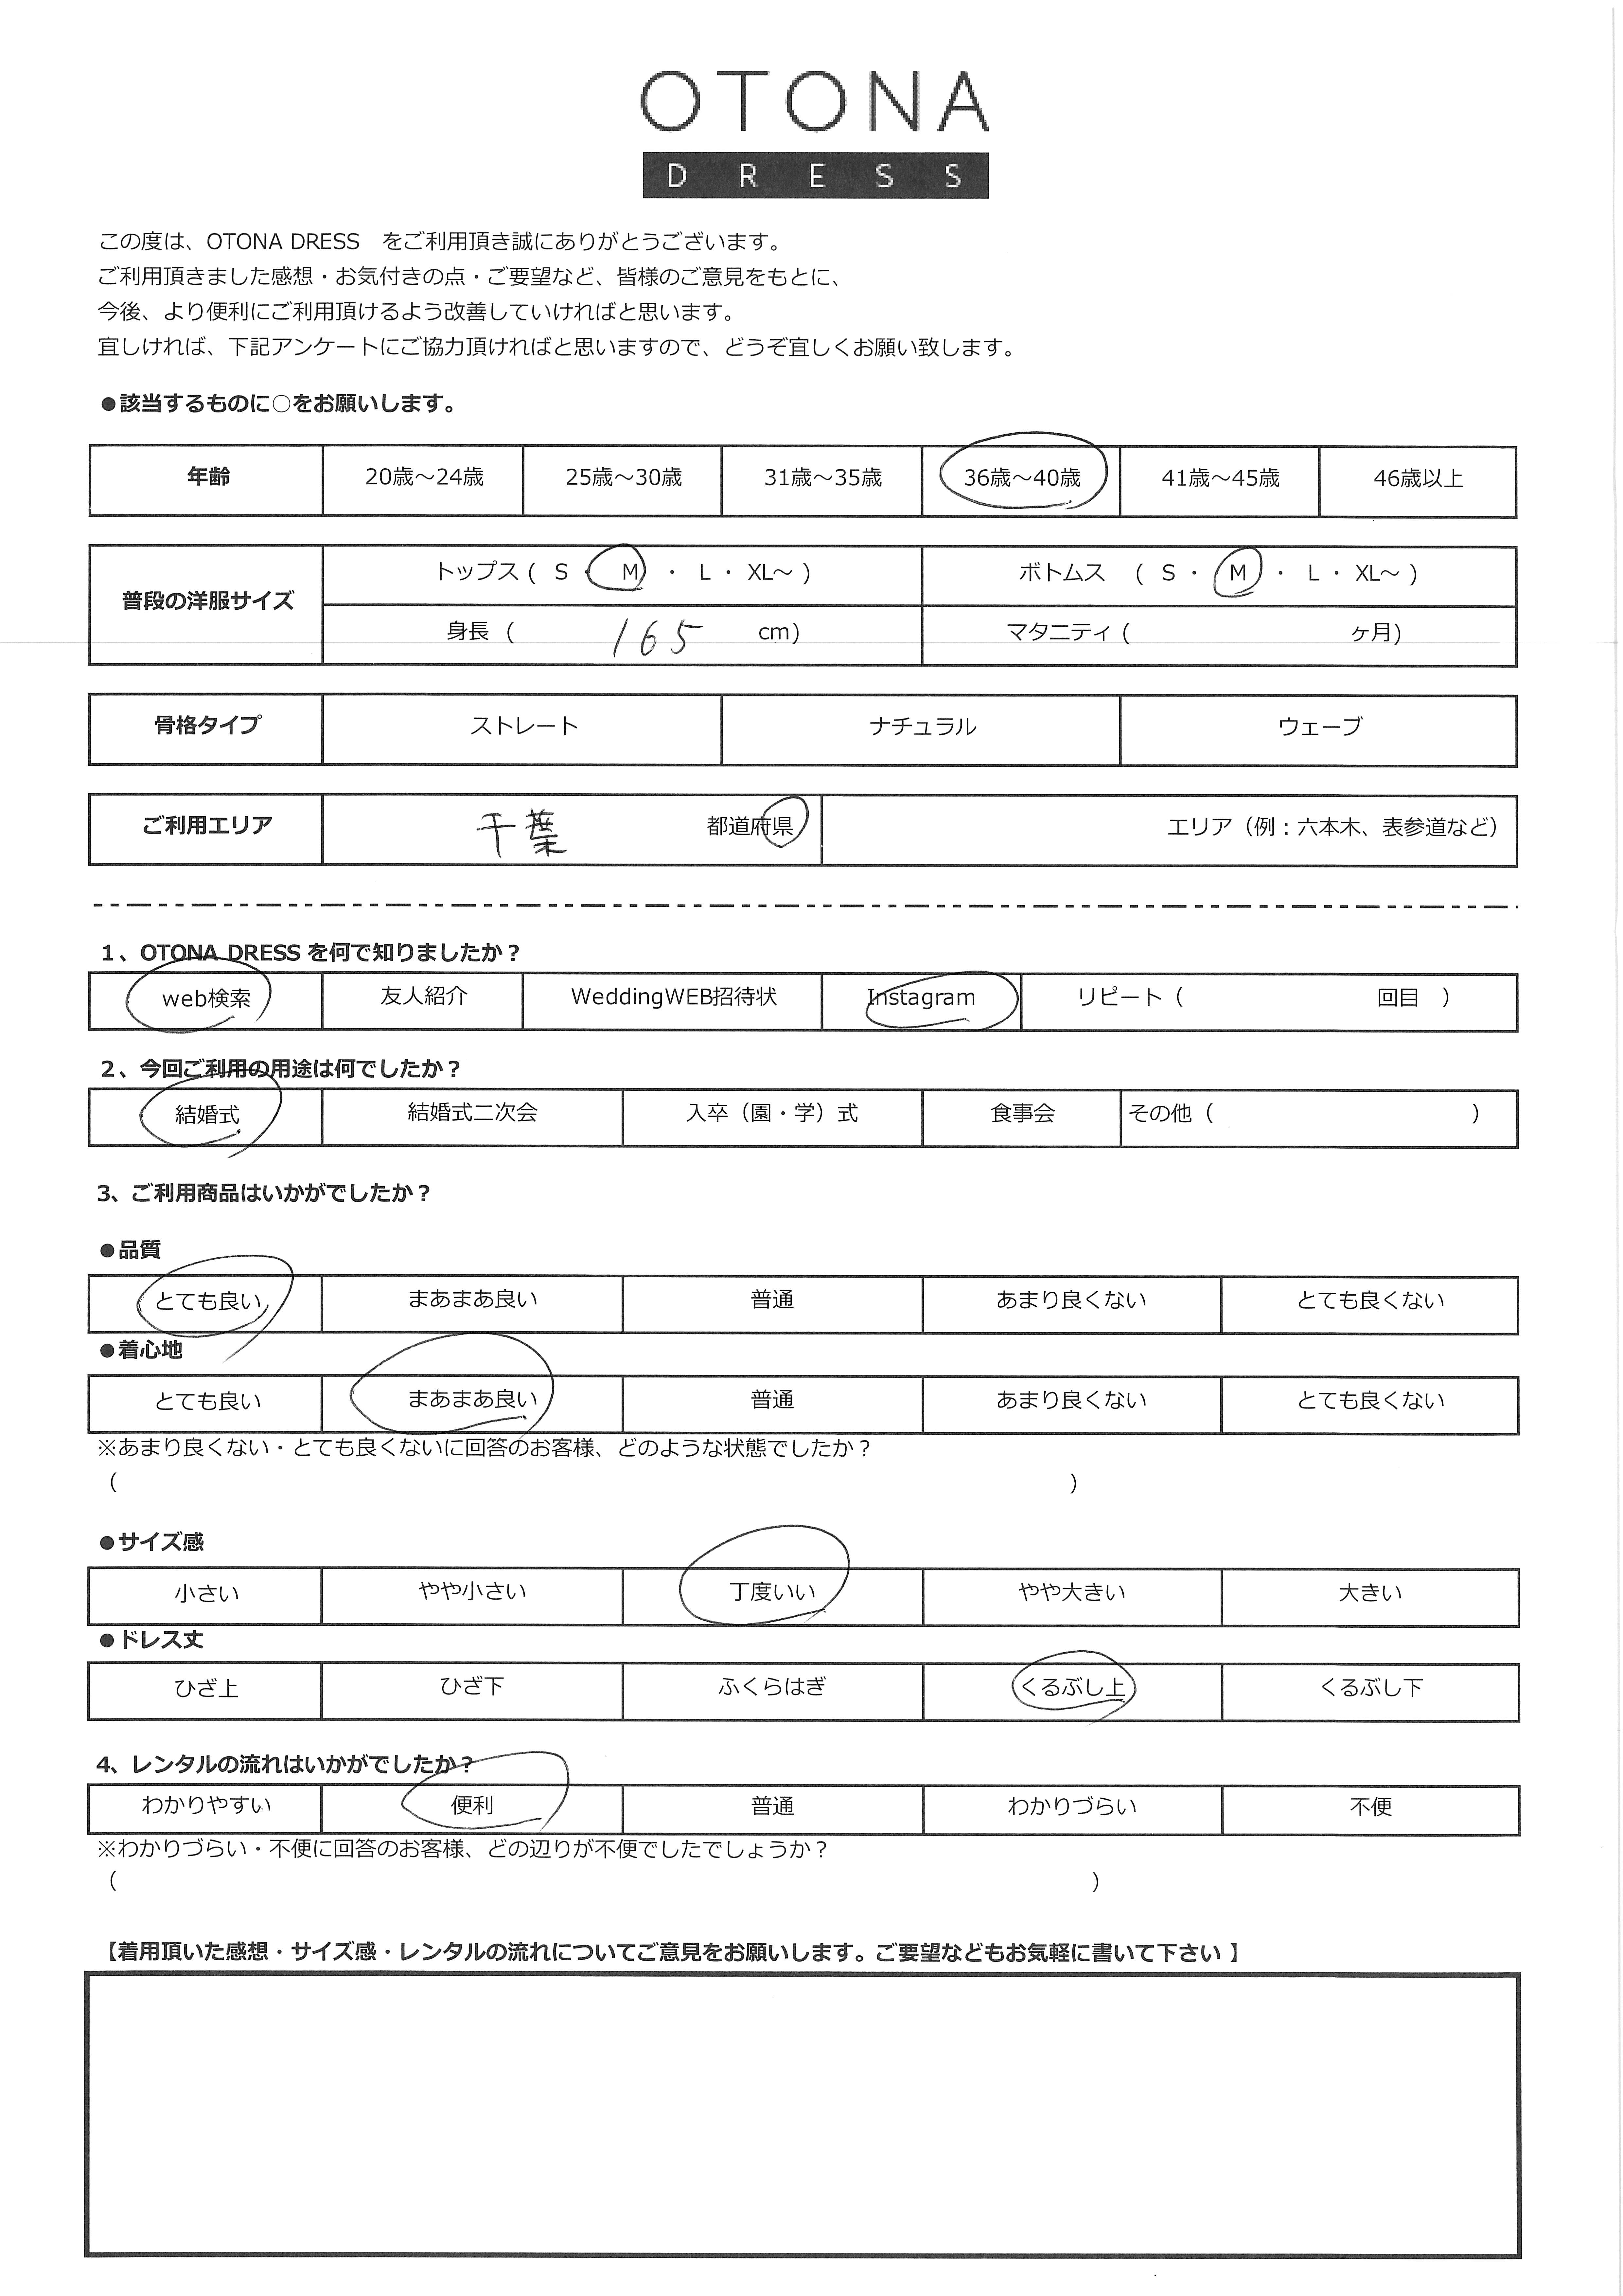 OTONA
DRESS
この度は、OTONA DRESS をご利用頂き誠にありがとうございます。
ご利用頂きました感想・お気付きの点・ご要望など、皆様のご意見をもとに、
今後、より便利にご利用頂けるよう改善していければと思います。
宜しければ、下記アンケートにご協力頂ければと思いますので、どうぞ宜しくお願い致します。
●該当するものに○をお願いします。
年齢 20歳～24歳 25歳～30歳 31歳～35歳 36歳～40歳 41歳～45歳 46歳以上
普段の洋服サイズ トップス ( S ・ M ・ L ・ XL～ ) ボトムス ( S ・ M ・ L ・ XL～ )
身長 ( 165 cm) マタニティ ( ヶ月)
骨格タイプ ストレート ナチュラル ウェーブ
ご利用エリア 千葉 都道府県 エリア（例：六本木、表参道など）
1、OTONA DRESS を何で知りましたか？
web検索 友人紹介 WeddingWEB招待状 Instagram リピート（ 回目 ）
2、今回ご利用の用途は何でしたか？
結婚式 結婚式二次会 入卒（園・学）式 食事会 その他（ ）
3、ご利用商品はいかがでしたか？
●品質
とても良い まあまあ良い 普通 あまり良くない とても良くない
●着心地
とても良い まあまあ良い 普通 あまり良くない とても良くない
※あまり良くない・とても良くないに回答のお客様、どのような状態でしたか？
（ ）
●サイズ感
小さい やや小さい 丁度いい やや大きい 大きい
●ドレス丈
ひざ上 ひざ下 ふくらはぎ くるぶし上 くるぶし下
4、レンタルの流れはいかがでしたか？
わかりやすい 便利 普通 わかりづらい 不便
※わかりづらい・不便に回答のお客様、どの辺りが不便でしたでしょうか？
（ ）
【着用頂いた感想・サイズ感・レンタルの流れについてご意見をお願いします。ご要望などもお気軽に書いて下さい 】